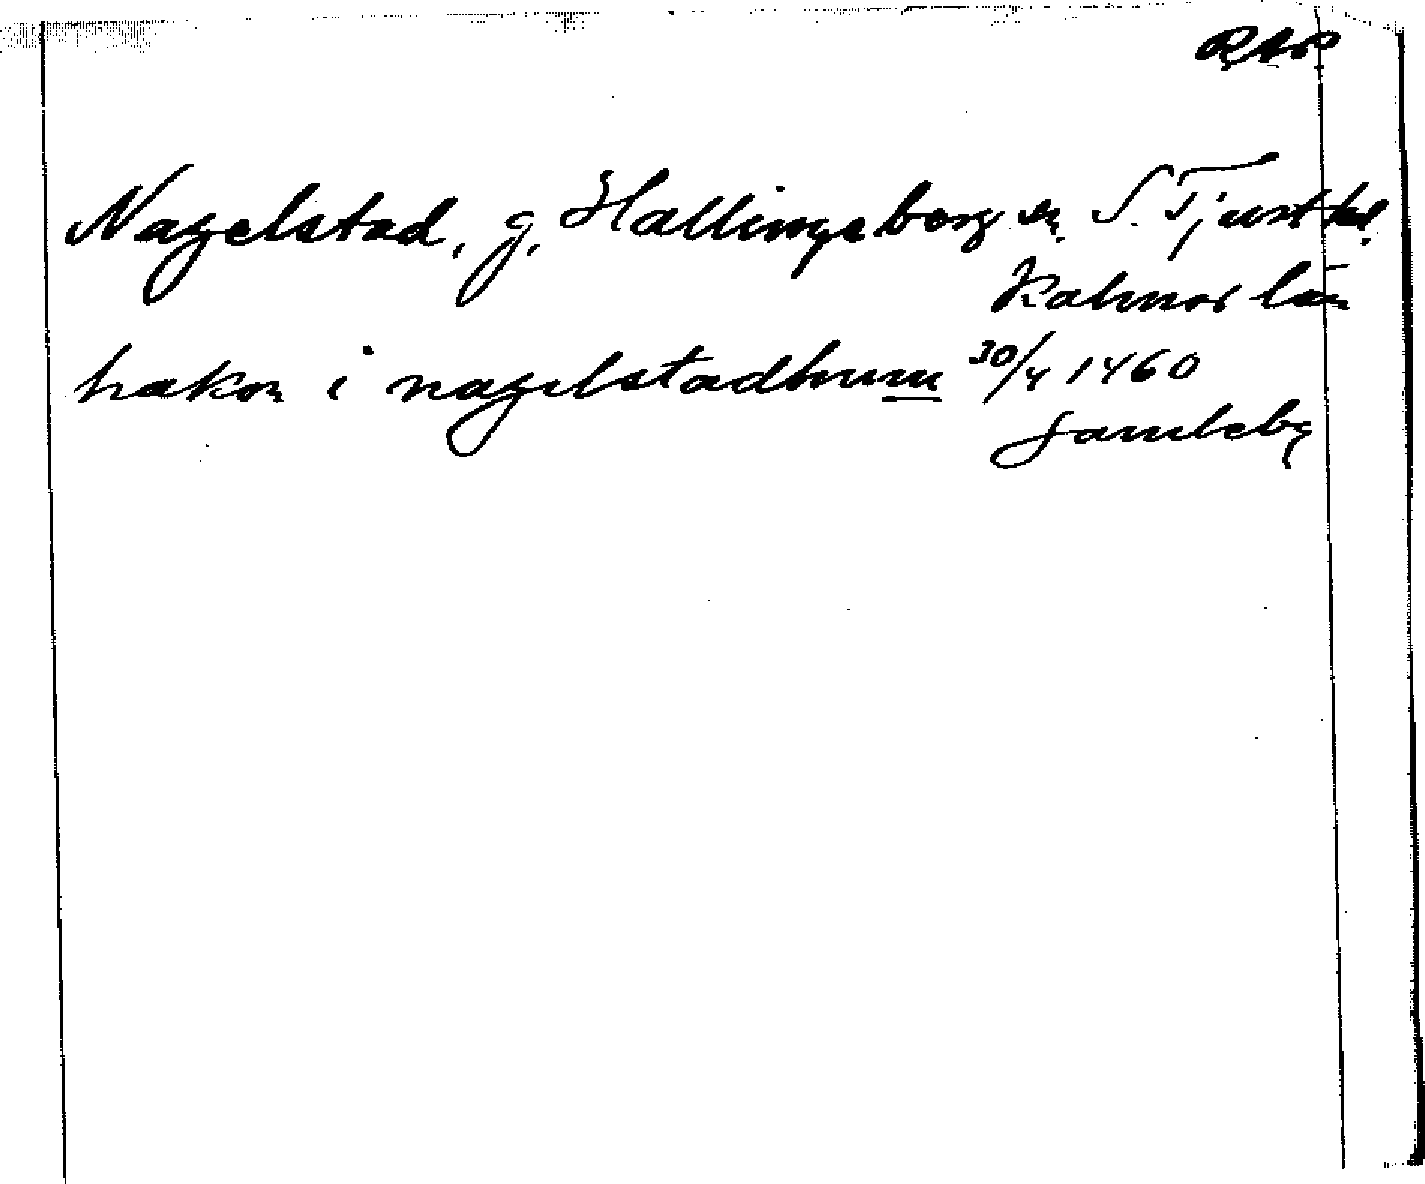 RAP
Nagelstad, g, Hallingeberg sn. S. Tjust hd.
Kalmar län
hakon i nagelstadhum 30/4 1460
Gamleby